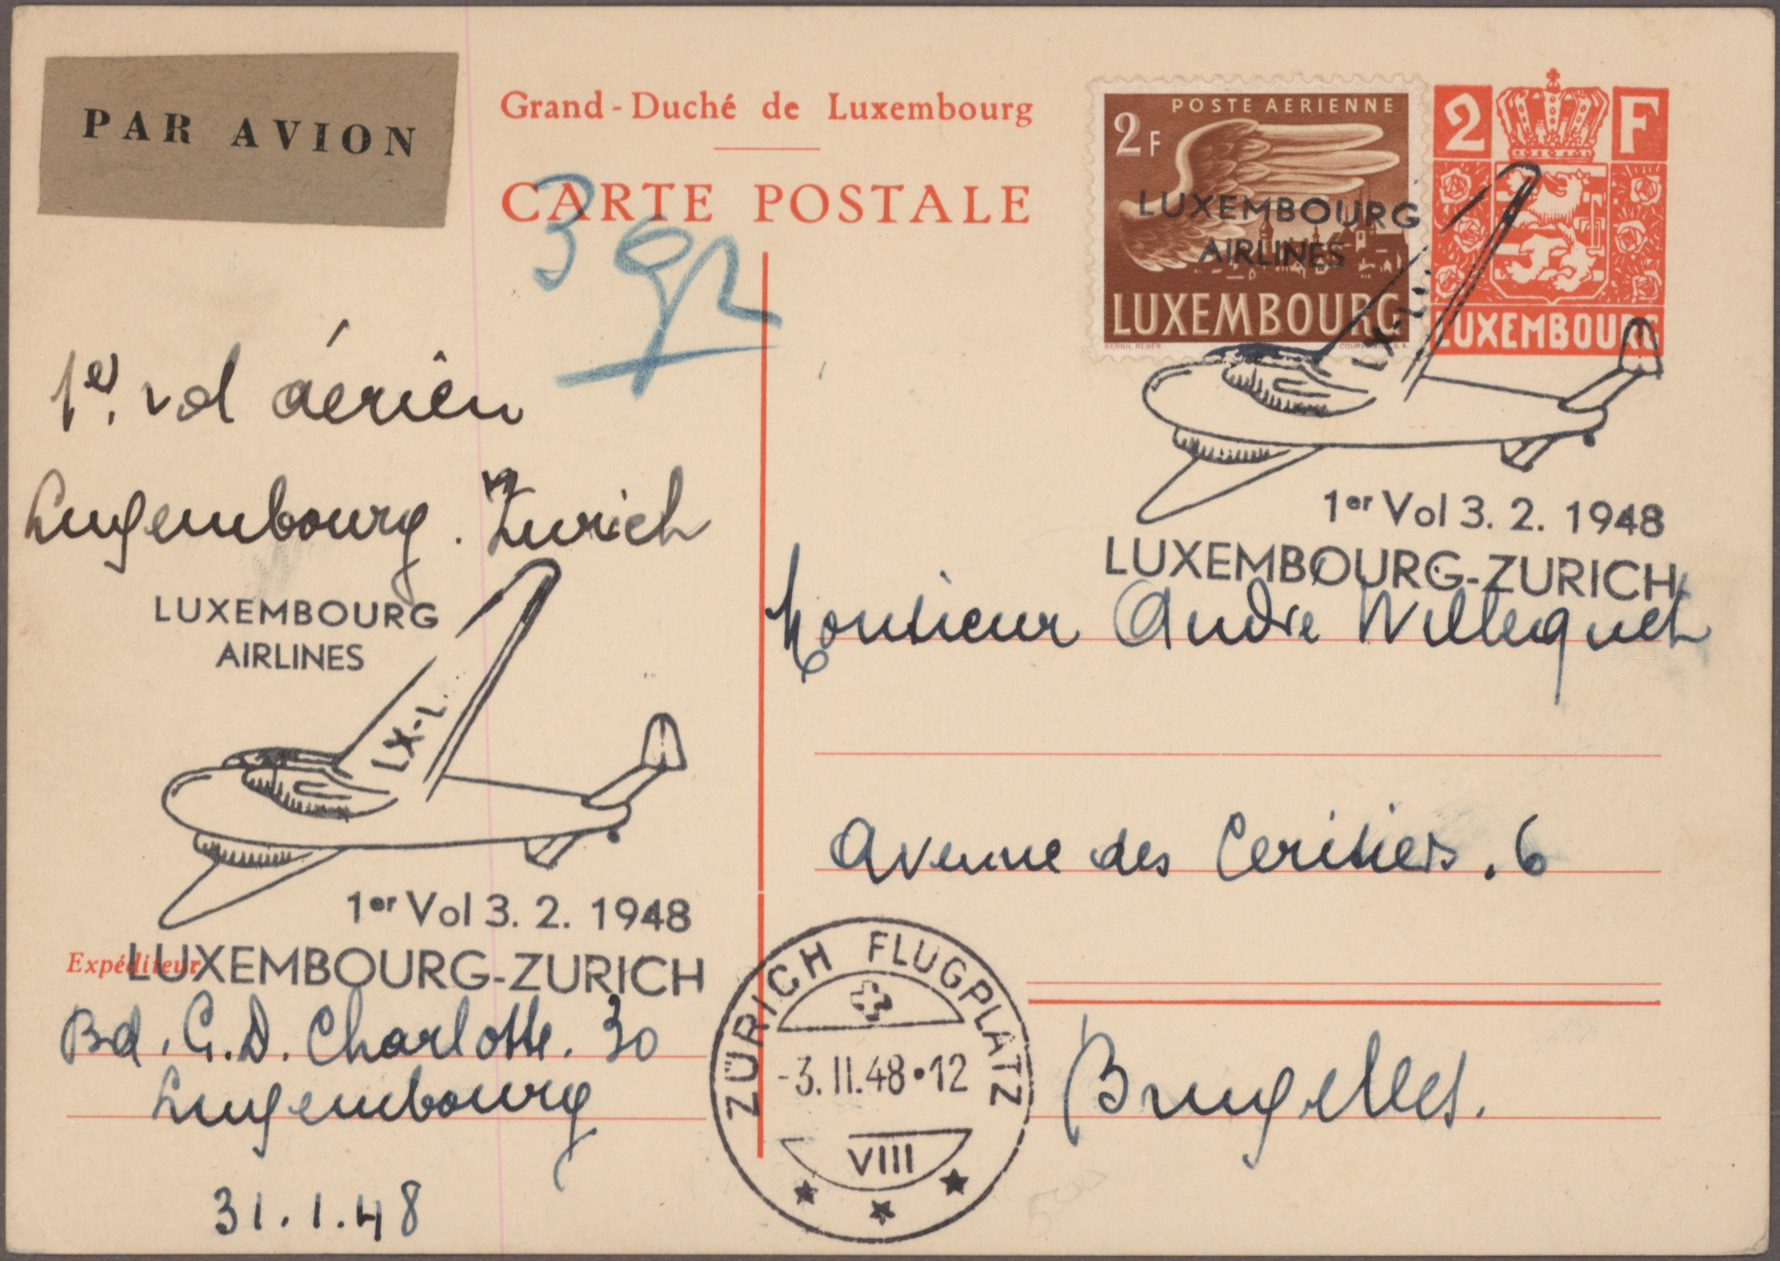 PAR AVION
Grand-Duché de Luxembourg
CARTE POSTALE
3 gr
POSTE AERIENNE
2F
LUXEMBOURG
2 F
LUXEMBOURG
LUXEMBOURG
AIRLINES
LX-L
1er Vol 3. 2. 1948
LUXEMBOURG-ZURICH
1er. vol aérien
Luxembourg. Zurich
LUXEMBOURG
AIRLINES
LX-L
1er Vol 3. 2. 1948
LUXEMBOURG-ZURICH
Monsieur André Willequet
Avenue des Cerisiers. 6
Bruxelles.
Expéditeur
Bd. G.D. Charlotte. 30
Luxembourg
31.1.48
ZÜRICH FLUGPLATZ
-3.II.48•12
VIII